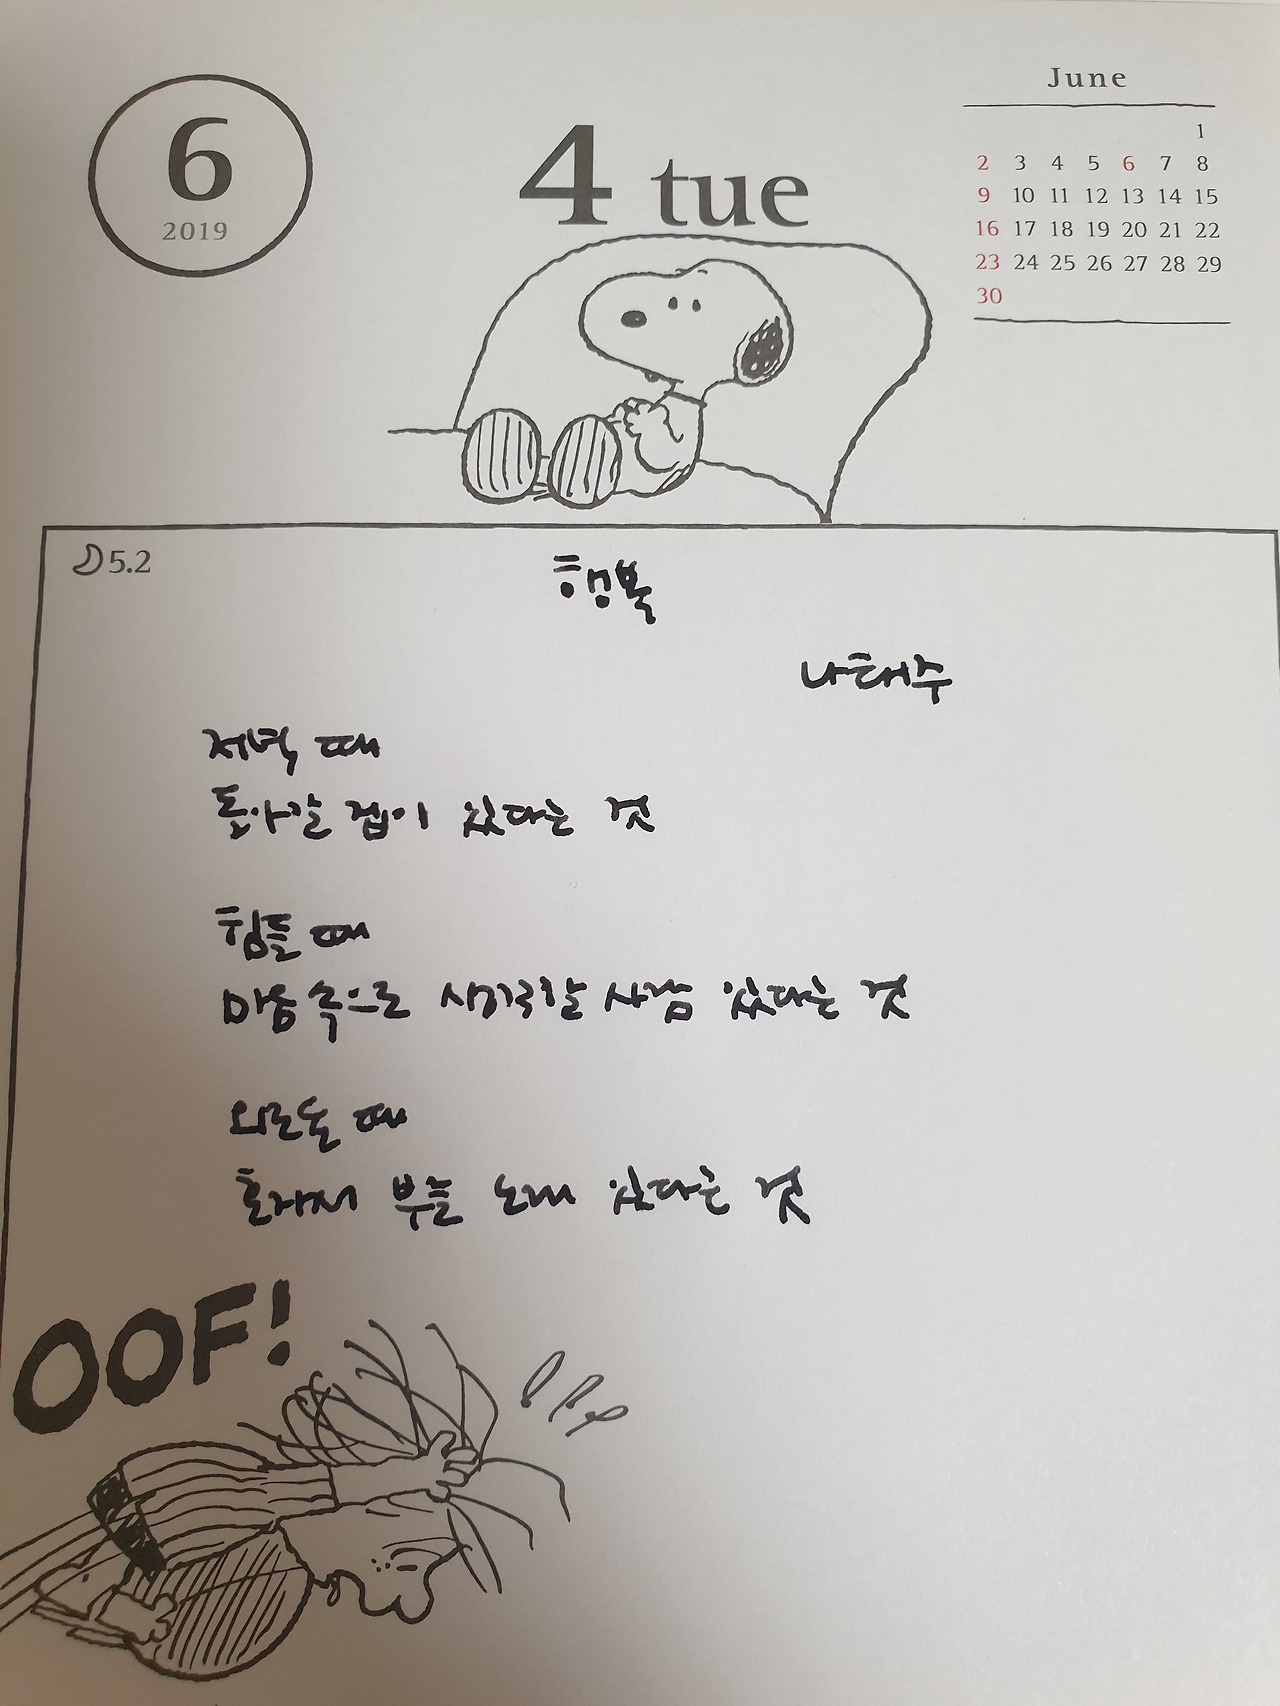 6
2019
4 tue
June
1
2 3 4 5 6 7 8
9 10 11 12 13 14 15
16 17 18 19 20 21 22
23 24 25 26 27 28 29
30
5.2
행복
나태주
저녁 때
돌아갈 집이 있다는 것
힘들 때
마음 속으로 생각할 사람 있다는 것
외로울 때
혼자서 부를 노래 있다는 것
OOF!